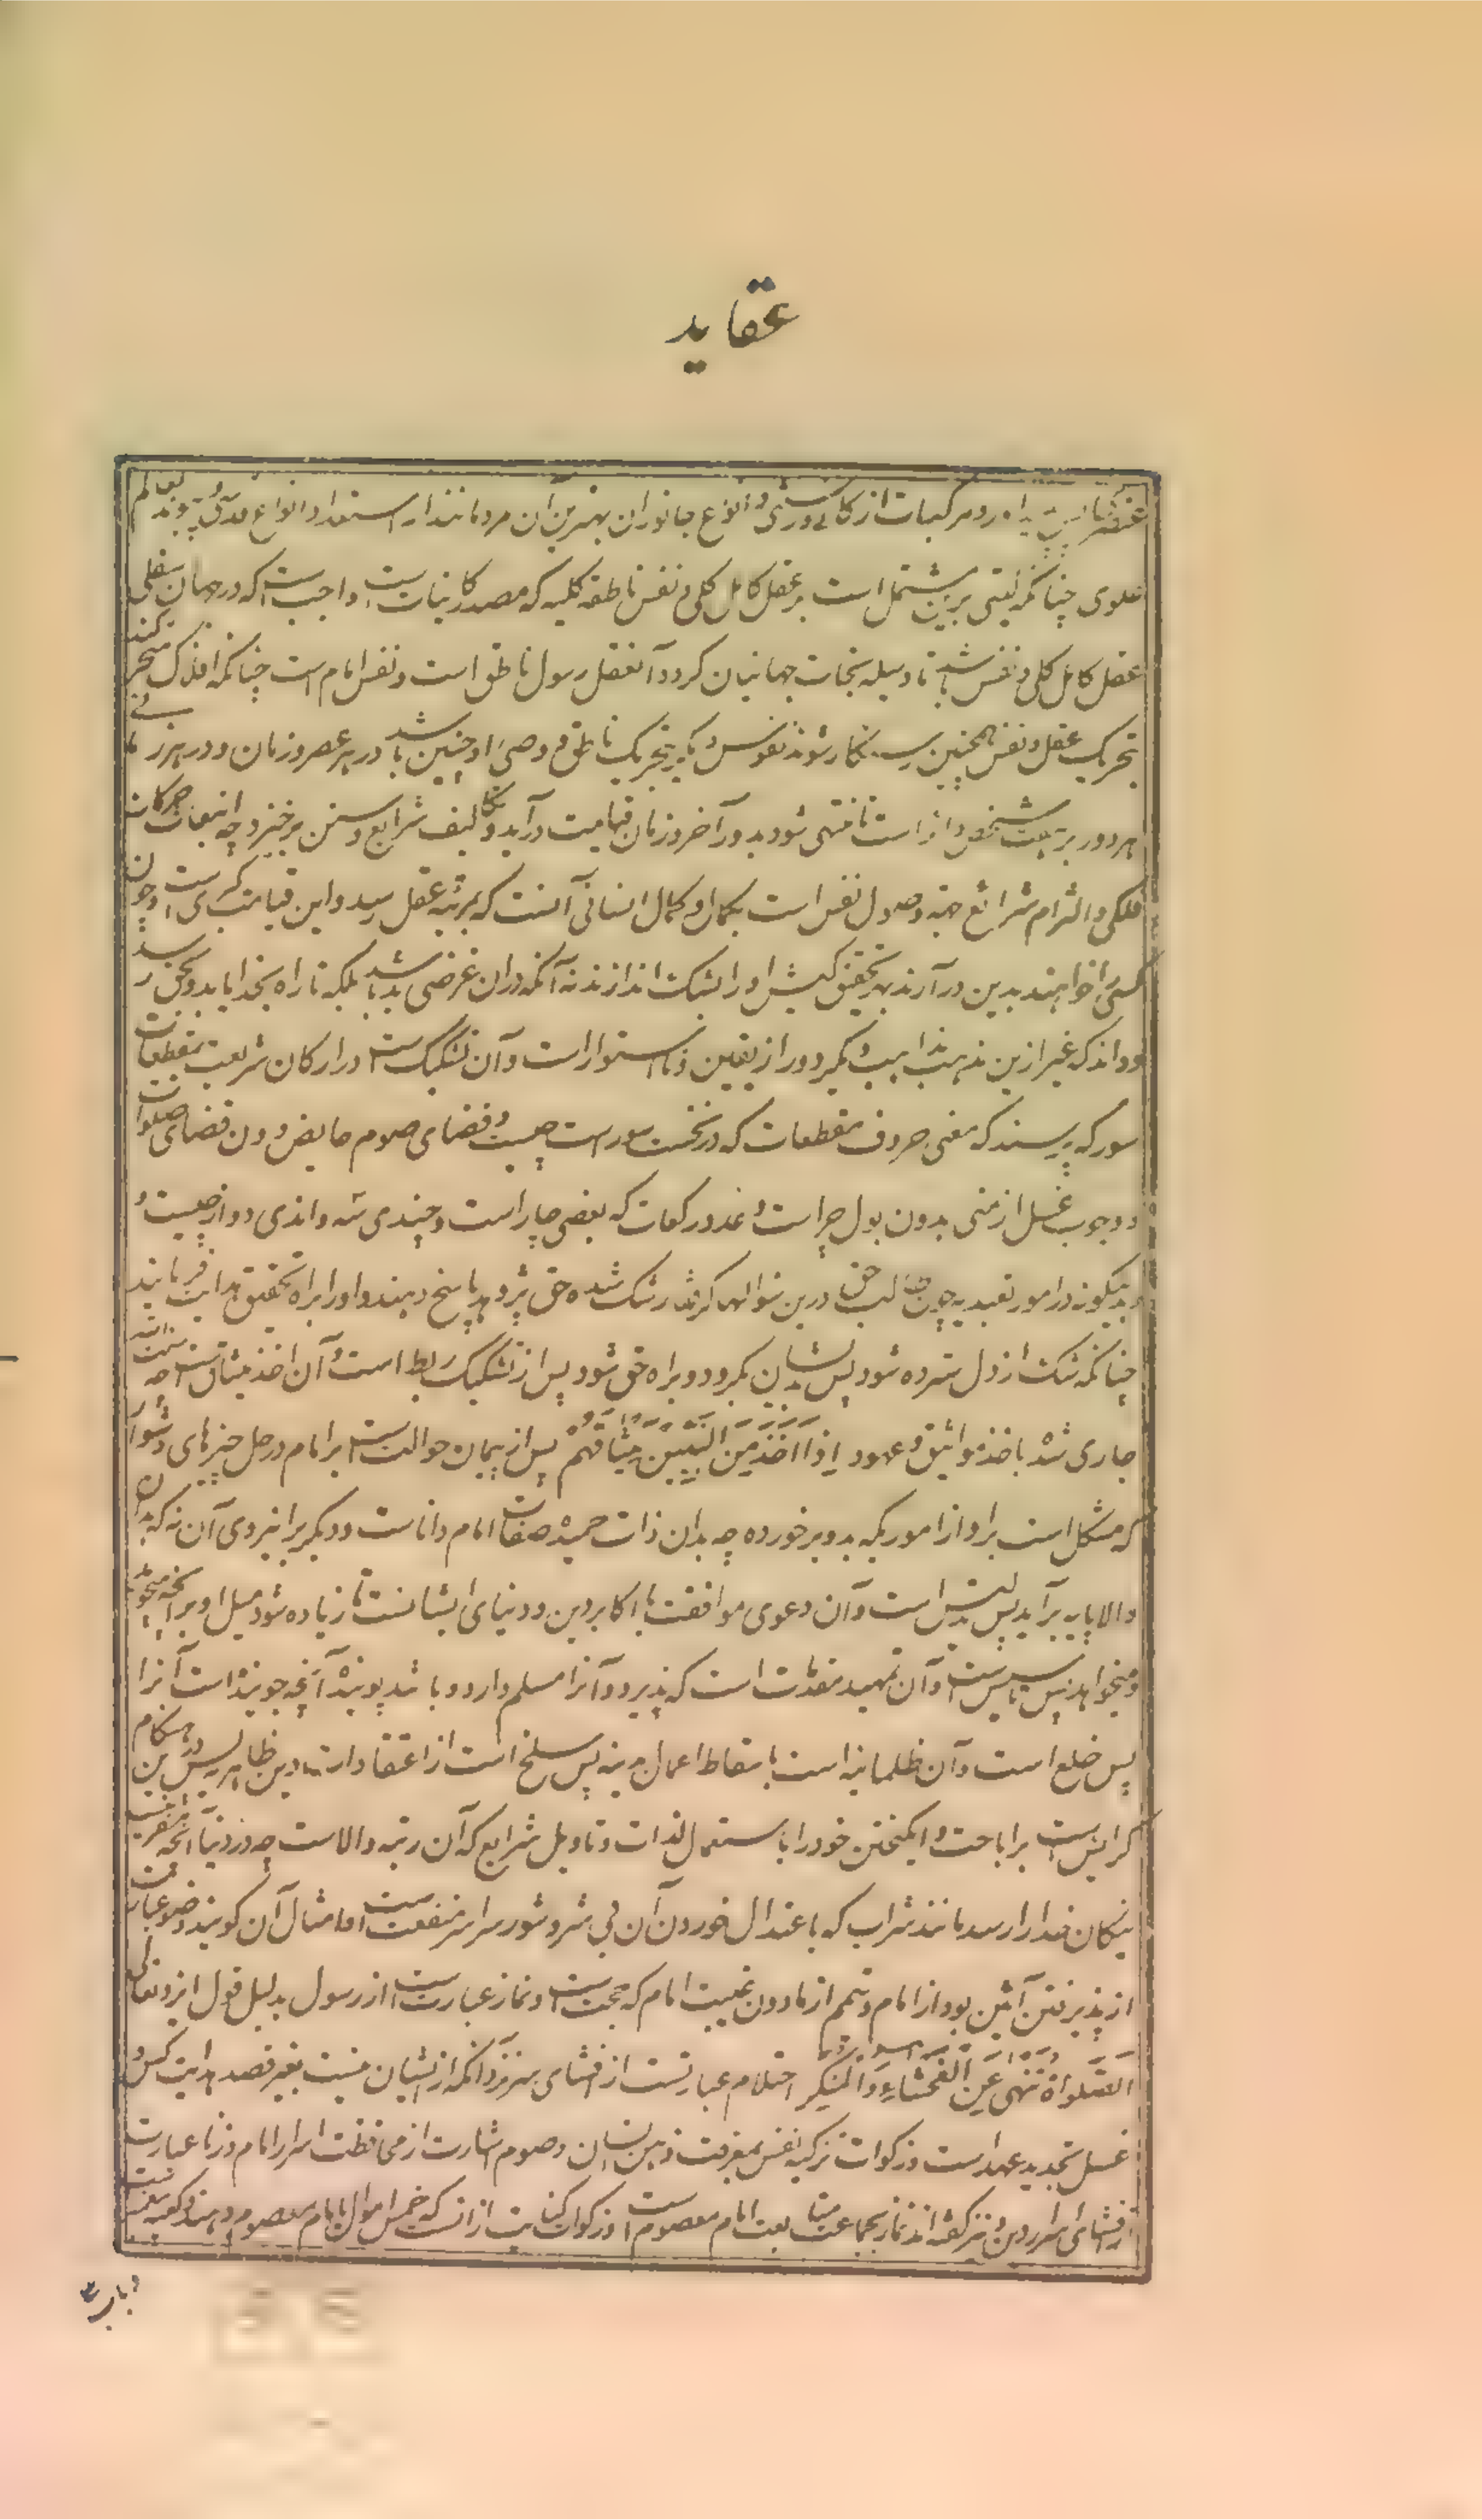 عقاید
مرکبات از کانی و رستنی و انواع جانوران بهترین آن مردمانند از استعداد و انواع بعالم
علوی چنانکه گیتی برین مشتمل است بر عقل کامل کلی و نفس ناطقه کلیه که مصدر کاینات است واجب است که در جهان سفلی
عقل کامل کلی و نفس باشد تا وسیله نجات جهانیان گردد آن عقل رسول ناطق است و نفس امام است چنانکه افلاک متحرکند
بتحریک عقل و نفس همچنین رستگار شوند نفوس دیگر بتحریک ناطق و وصی او چنین باشد در هر عصر و زمان و در هر زمانی
هر دور بر هفت شخص دائر است تا منتهی شود بدور آخر و زمان قیامت درآید و تکالیف شرایع و سنن برخیزد چه انبعاث حرکات
فلکی و التزام شرائع جهت وصول نفس است بکمال و کمال انسانی آنست که بمرتبه عقل رسد و این قیامت کبری است و چون
کسی را خواهند بدین درآرند بتحقیق کیش او را بشک اندازند نه آنکه در آن غرضی بد باشد بلکه تا راه بخدا یابد و بحق رسد
و داند که غیر ازین مذهب مذاهب دیگر دور از یقین و نا استوار است و آن تشکیک است در ارکان شریعت بمقطعات
سور که پرسند که معنی حروف مقطعات که در نخست سور است چیست و قضای صوم حایض دون قضای صلوات
و وجوب غسل از منی بدون بول چراست و عدد رکعات که بعضی چار است و چندی سه و اندی دو از چیست و
بدینگونه در امور تعبدیه چون طالب حق درین سوالها گرفتار شک شده حق پژوهد پاسخ دهند و او را براه تحقیق هدایت فرمایند
چنانکه شک از دل سترده شود پس بدیشان بگرود و براه حق شود پس از تشکیک ربط است و آن اخذ میثاق است چه سنت الله
جاری شده باخذ مواثیق و عهود اِذْ اَخَذَ مِنَ النَّبِیِّینَ مِیثَاقَهُمْ پس از پیمان حوالت است بر امام در حل چیزهای دشوار
که مشکل است بر او از اموریکه بدو برخورده چه بدان ذات حمیده صفات امام داناست و دیگری را نیروی آن نه که بدان
والا پایه برآید پس تدلیس است و آن دعوی موافقت با اکابر دین و دنیای ایشانست تا زیاده شود میل او بر آنچه میجوید
و میخواهد پس تاسیس است و آن تمهید مقدمات است که پذیرد و آنرا مسلم دارد و باشد پوینده آنچه جوینده است آنرا
پس خلع است و آن طمانیه است باسقاط اعمال بدنیه پس سلخ است از اعتقادات دین ظاهر پس درین هنگام
گرائیدن است بر اباحت و انگیختن خود را باستعمال لذات و تاویل شرایع که آن رتبه والاست چه در دنیا آنچه آفریده
نیکان خدا را رسد مانند شراب که باعتدال خوردن آن بی شر و شور سراسر منفعت است و امثال آن گویند وضو عبارت
از پذیرفتن آئین بود از امام و تیمم از ماذون غیبت امام که حجت است و نماز عبارت است از رسول بدلیل قول ایزد تعالی
الصَّلوٰةَ تَنْهٰی عَنِ الْفَحْشَاءِ وَالْمُنْکَرِ احتلام عبارتست از افشای سر نزد آنکه از ایشان نیست بغیر قصد هدایت کس و
غسل تجدید عهد است و زکوات تزکیه نفس بمعرفت دین ایشان و صوم اشارت از محافظت اسرار امام و زنا عبارت
از افشای اسرار دین و نیز گفته اند نماز بجماعت متابعت امام معصوم است و زکوات کنایت از آنست که خمس اموال بامام معصوم دهند و کعبه
و باب